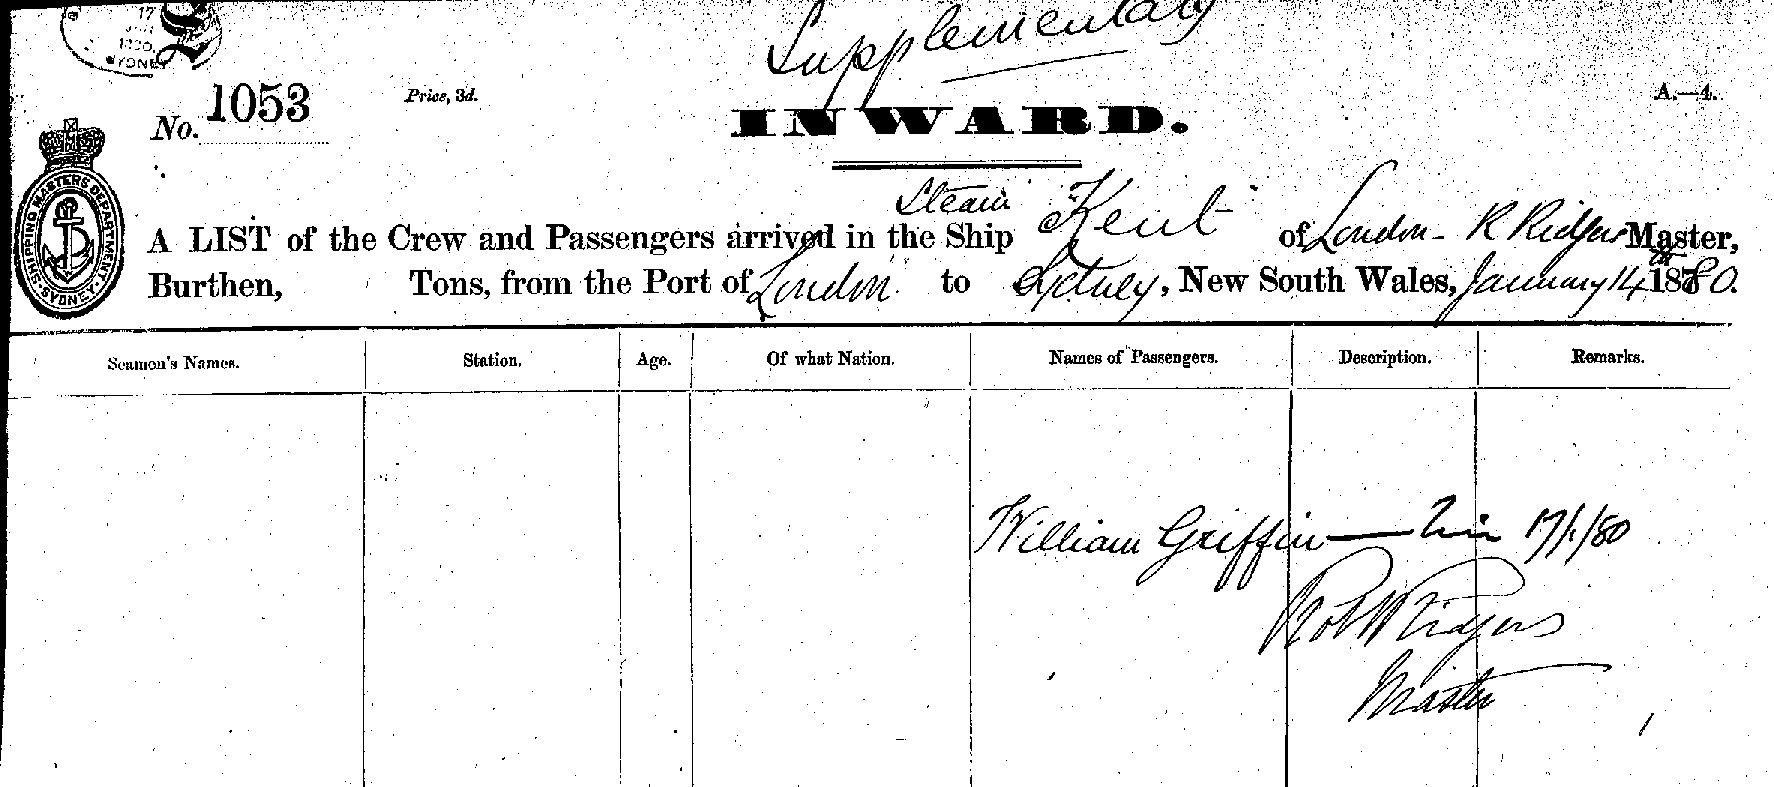 17
SYDNEY
Supplementary
No. 1053
Price, 3d.
A.—4.
INWARD.
SHIPPING MASTERS DEPARTMENT
SYDNEY
Steam
A LIST of the Crew and Passengers arrived in the Ship "Kent" of London - R Ridgers Master,
Burthen, Tons, from the Port of London to Sydney, New South Wales, January 14 1880.
Seamen's Names. Station. Age. Of what Nation. Names of Passengers. Description. Remarks.
William Griffin — 17/1/80
Robt Ridgers
Master